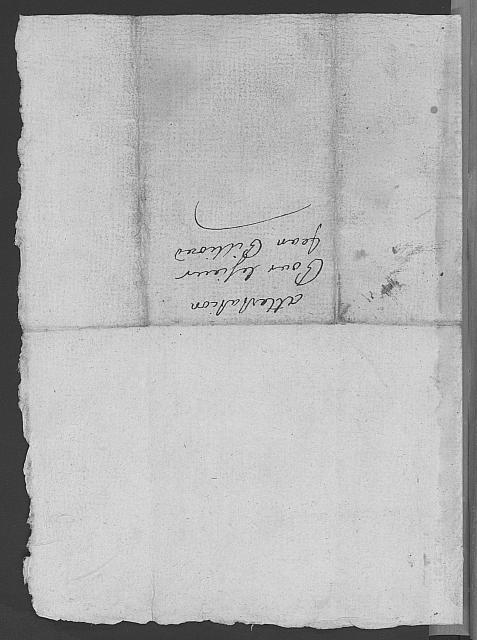 attestation
Pour le sieur
Jean